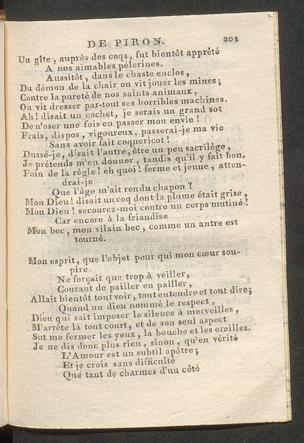 DE PIRON. 201
Un gîte, auprès des coqs, fut bientôt apprêté
A nos aimables pélerines.
Aussitôt, dans le chaste enclos,
Du démon de la chair on vit jouer les mines ;
Contre la pureté de nos saints animaux,
On vit dresser par-tout ses horribles machines.
Ah ! disait un cochet, je serais un grand sot
De n'oser une fois en passer mon envie !
Frais, dispos, vigoureux, passerai-je ma vie
Sans avoir fait coquericot !
Dussé-je, disait l'autre, être un peu sacrilège,
Je prétends m'en donner, tandis qu'il y fait bon.
Foin de la règle ! eh quoi ! ferme et jeune, atten-
drai-je
Que l'âge m'ait rendu chapon ?
Mon Dieu ! disait un coq dont la plume était grise,
Mon Dieu ! secourez-moi contre un corps mutiné !
Car encore à la friandise
Mon bec, mon vilain bec, comme un antre est
tourné.
Mon esprit, que l'objet pour qui mon cœur sou-
pire
Ne forçait que trop à veiller,
Courant de pailler en pailler,
Allait bientôt tout voir, tout entendre et tout dire ;
Quand un dieu nommé le respect,
Dieu qui sait imposer le silence à merveilles,
M'arrête là tout court, et de son seul aspect
Sut me fermer les yeux, la bouche et les oreilles.
Je ne dis donc plus rien, sinon, qu'en vérité
L'Amour est un subtil apôtre ;
Et je crois sans difficulté
Que tant de charmes d'un côté